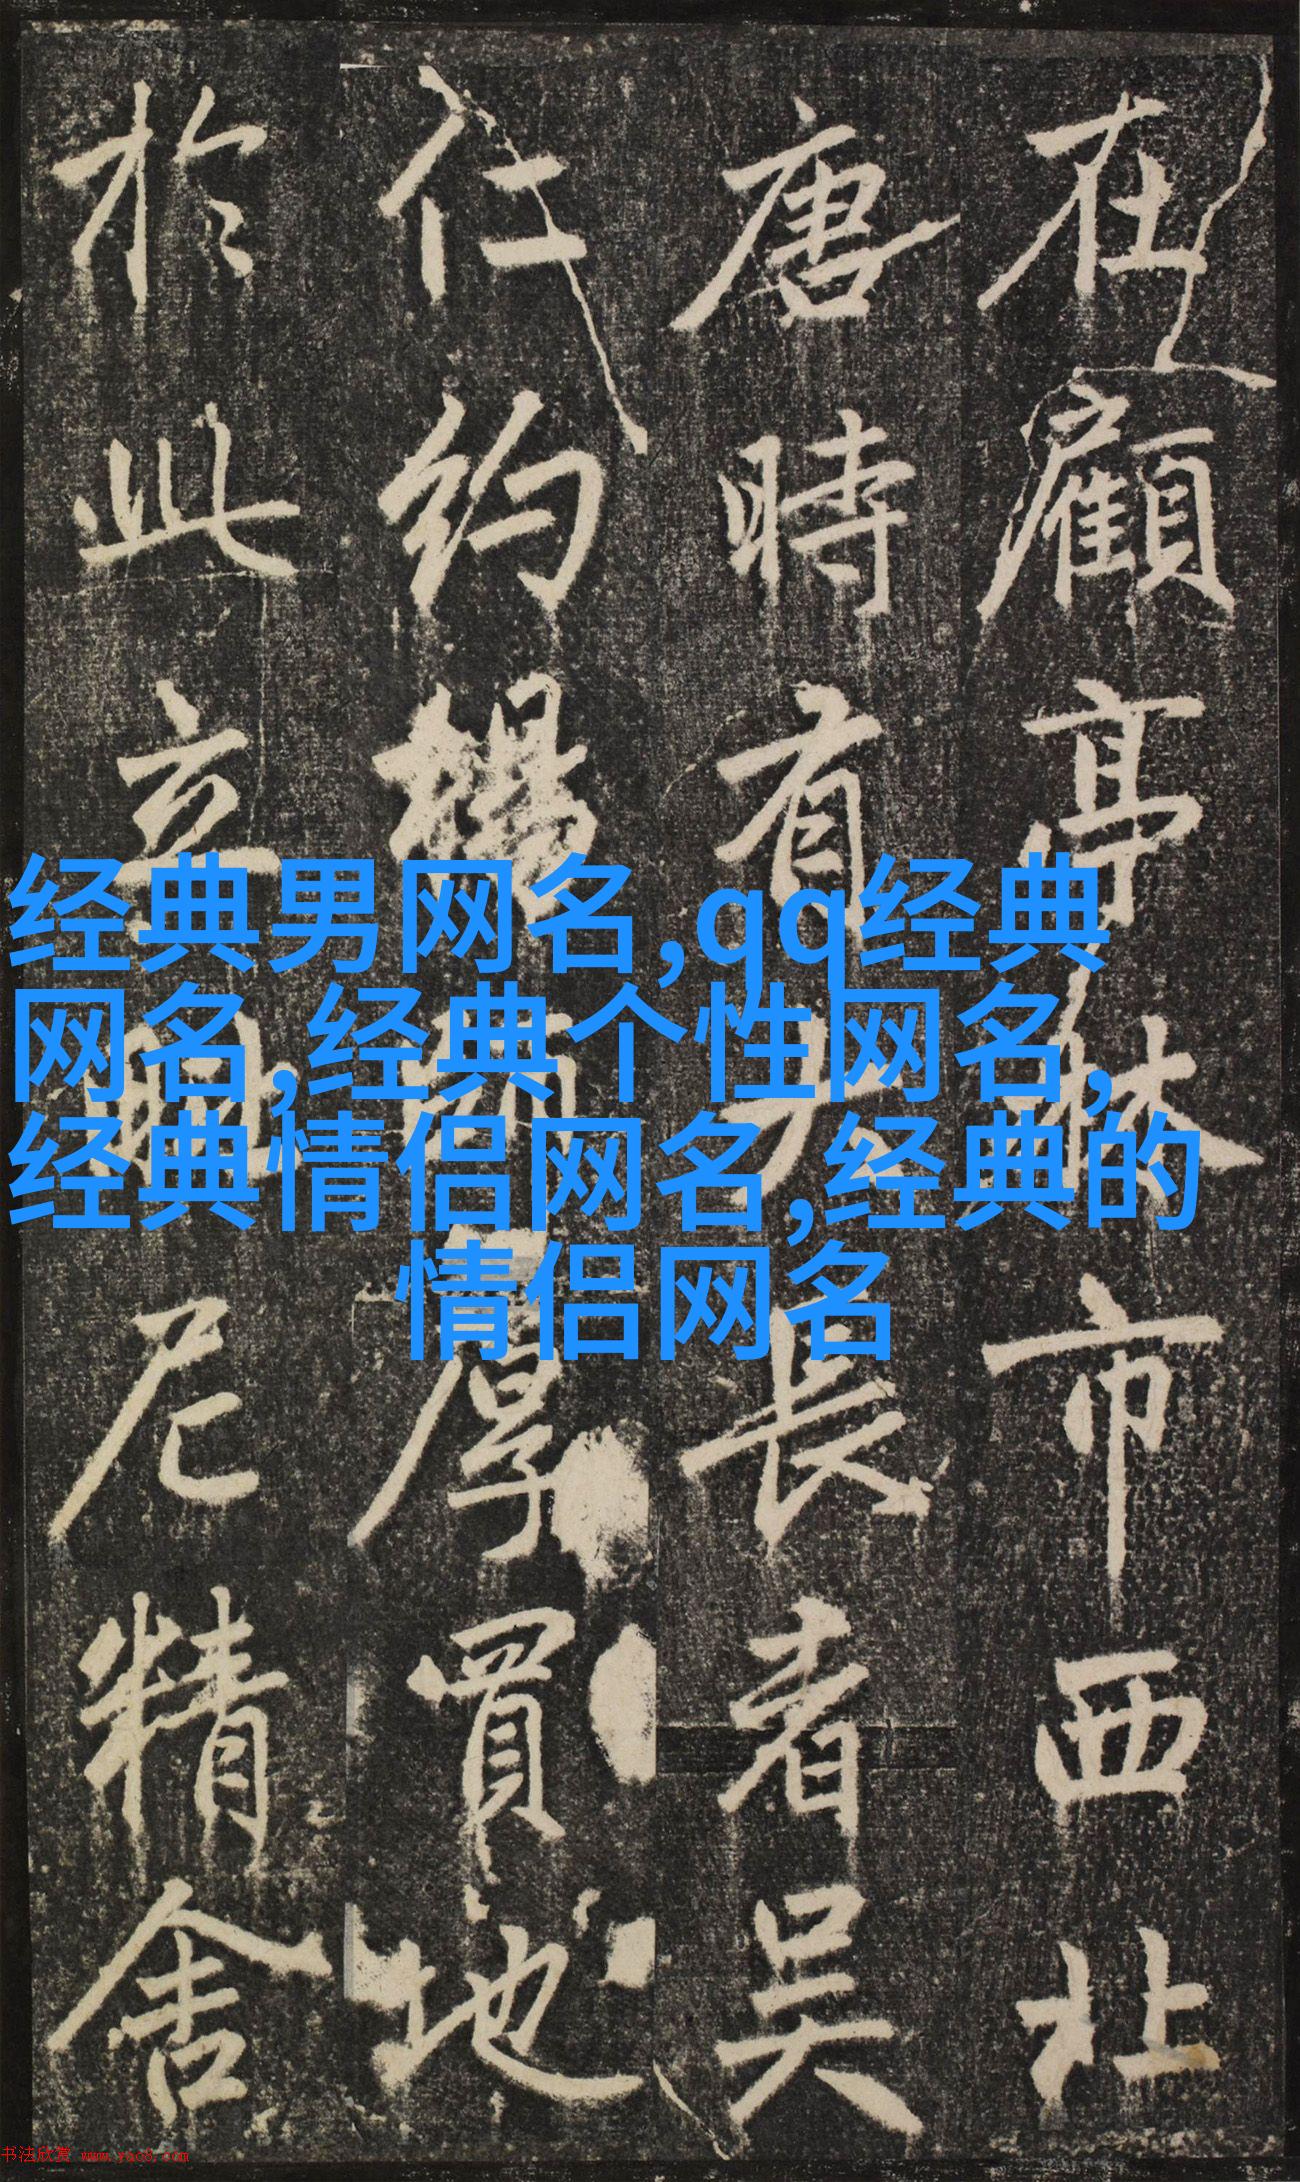 在顧亭林市西北
唐時有大長者吳
仁約厚買地
於此立尼精舍
经典男网名,qq经典
网名,经典个性网名,
经典情侣网名,经典的
情侣网名
书法欣赏 www.yac8.com